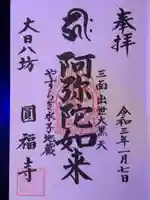 奉拝
令和三年一月七日
三面出世大黒天
阿弥陀如来
やすらぎ水子地蔵
大日八坊
圓福寺